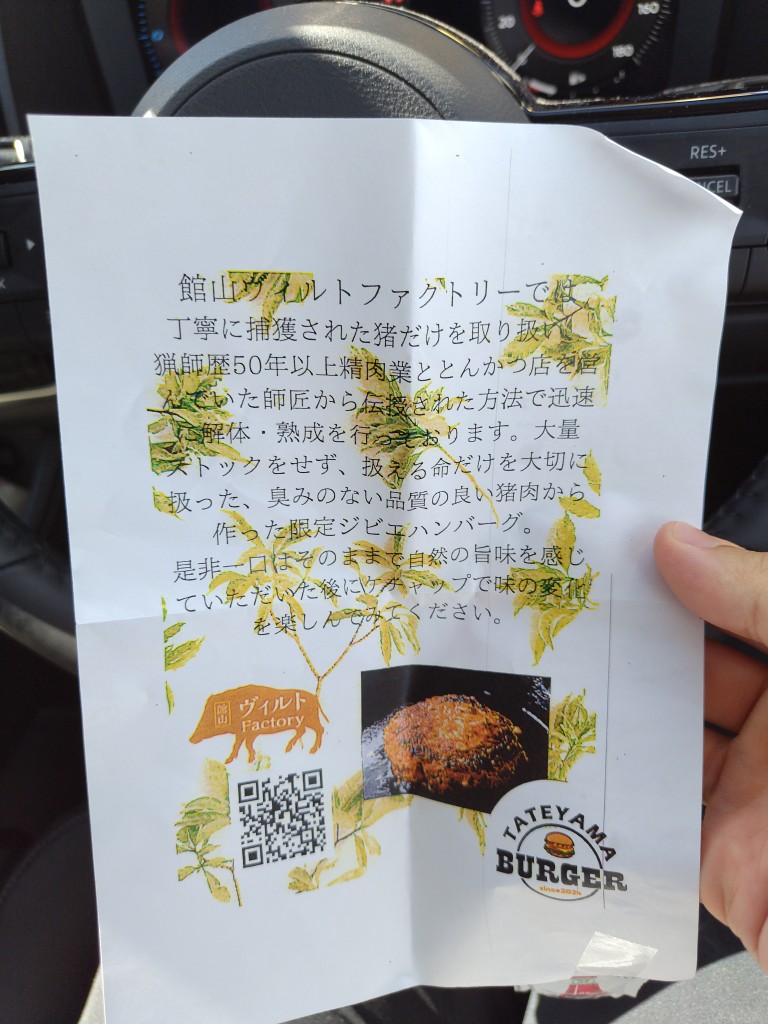 30
160
180
RES+
NCEL
館山ヴィルトファクトリーでは、
丁寧に捕獲された猪だけを取り扱い、
猟師歴50年以上精肉業ととんかつ店を営
んでいた師匠から伝授された方法で迅速
に解体・熟成を行っております。大量
ストックをせず、扱える命だけを大切に
扱った、臭みのない品質の良い猪肉から
作った限定ジビエハンバーグ。
是非一口はそのままで自然の旨味を感じ
ていただいた後にケチャップで味の変化
を楽しんでみてください。
館山
ヴィルト
Factory
TATEYAMA
BURGER
since2024